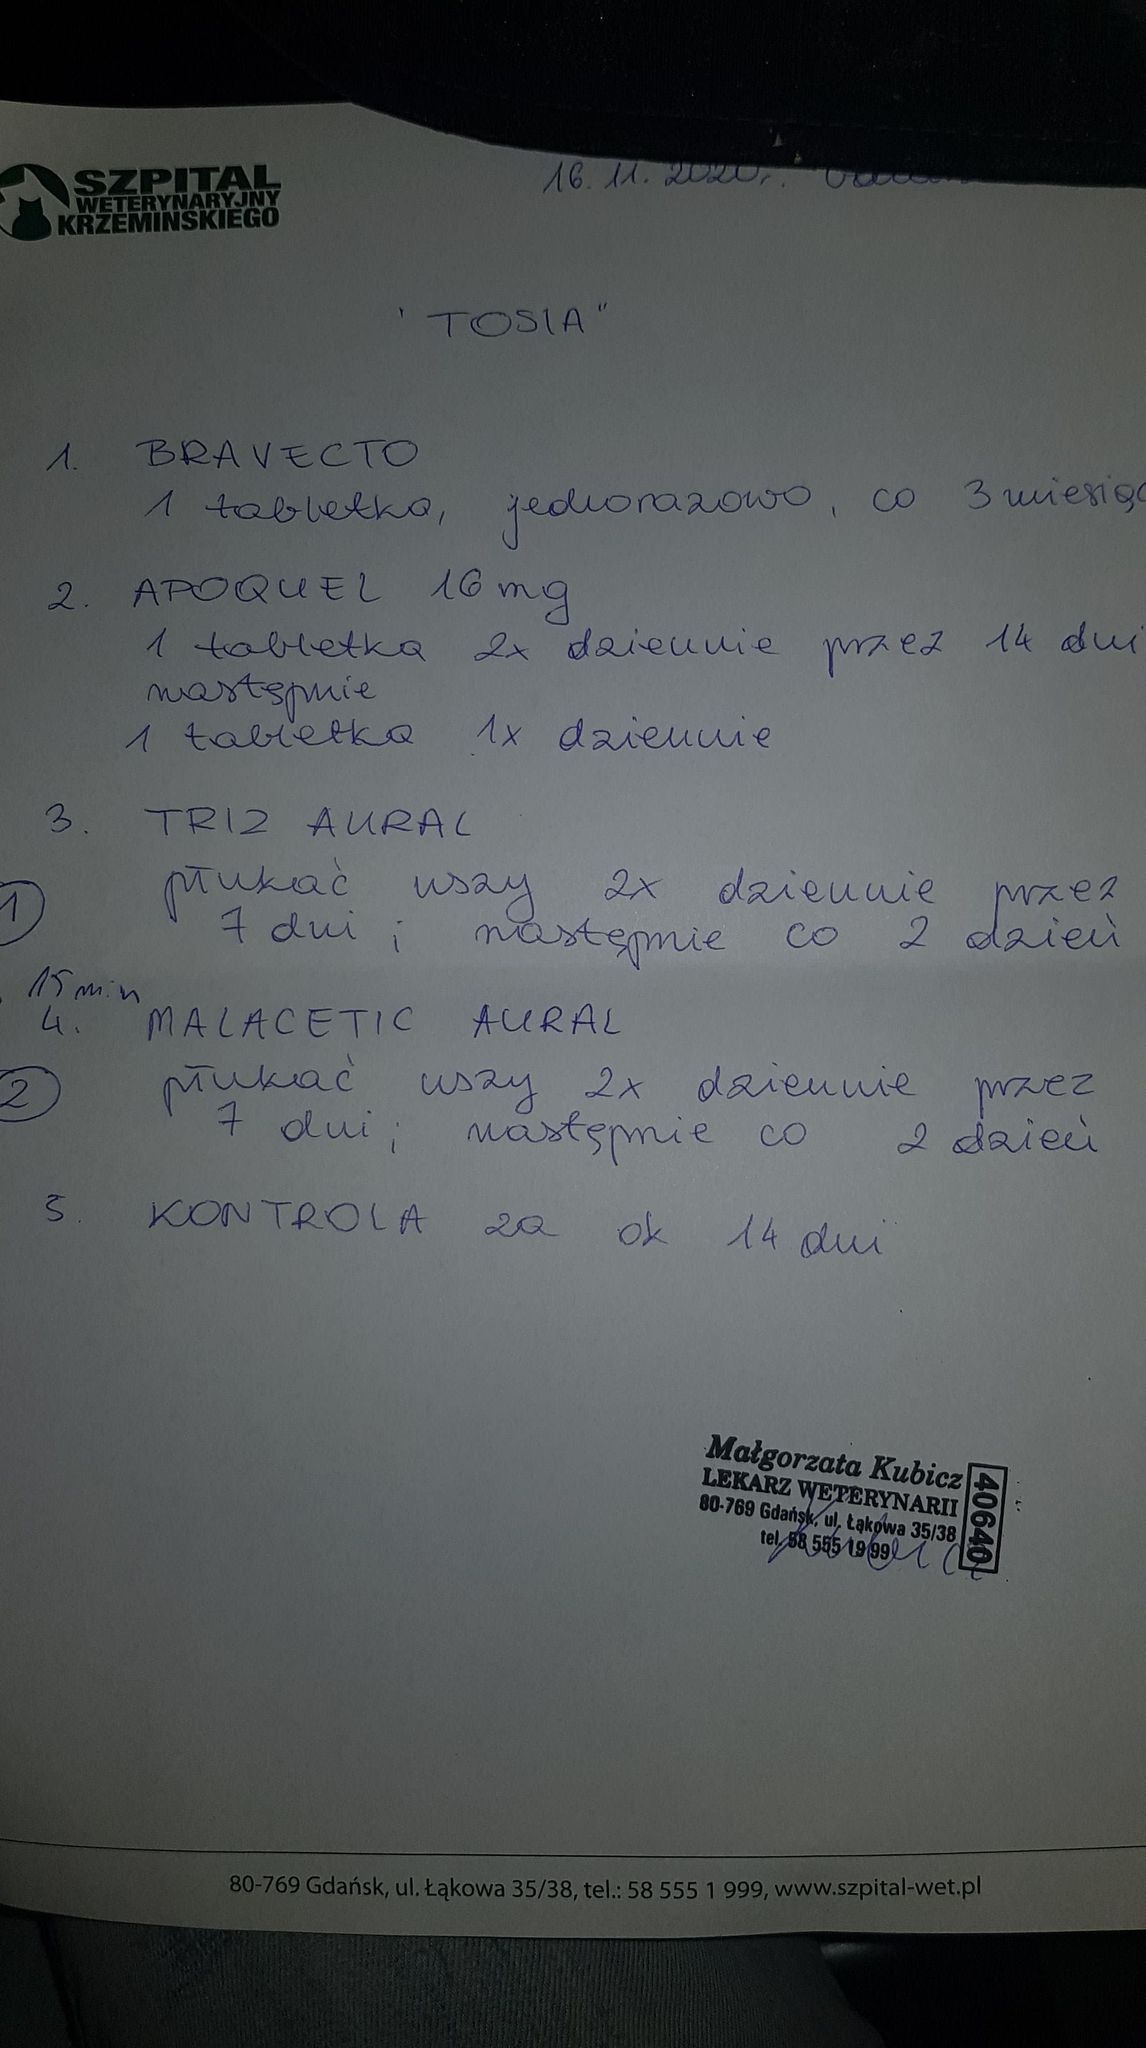 SZPITAL
WETERYNARYJNY
KRZEMIŃSKIEGO
16.11.2020r.
"TOSIA"
1. BRAVECTO
1 tabletka, jednorazowo, co 3 miesiąc
2. APOQUEL 16 mg
1 tabletka 2x dziennie przez 14 dni
następnie
1 tabletka 1x dziennie
3. TRIZ AURAL
1 płukać uszy 2x dziennie przez
7 dni; następnie co 2 dzień
15 min
4. MALACETIC AURAL
2 płukać uszy 2x dziennie przez
7 dni; następnie co 2 dzień
5. KONTROLA za ok 14 dni
Małgorzata Kubicz
LEKARZ WETERYNARII
80-769 Gdańsk, ul. Łąkowa 35/38
tel. 58 555 19 99
40640
80-769 Gdańsk, ul. Łąkowa 35/38, tel.: 58 555 1 999, www.szpital-wet.pl